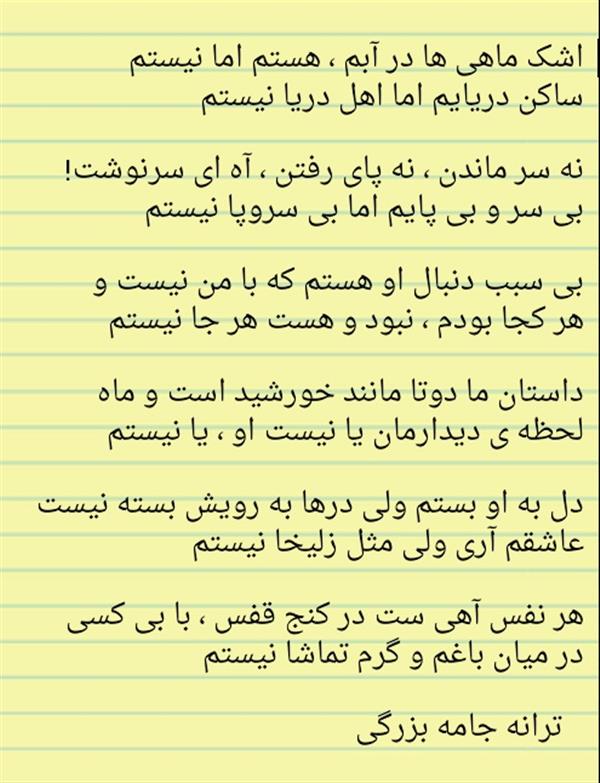 اشک ماهی ها در آبم ، هستم اما نیستم
ساکن دریایم اما اهل دریا نیستم
نه سر ماندن ، نه پای رفتن ، آه ای سرنوشت!
بی سر و بی پایم اما بی سروپا نیستم
بی سبب دنبال او هستم که با من نیست و
هر کجا بودم ، نبود و هست هر جا نیستم
داستان ما دوتا مانند خورشید است و ماه
لحظه ی دیدارمان یا نیست او ، یا نیستم
دل به او بستم ولی درها به رویش بسته نیست
عاشقم آری ولی مثل زلیخا نیستم
هر نفس آهی ست در کنج قفس ، با بی کسی
در میان باغم و گرم تماشا نیستم
ترانه جامه بزرگی